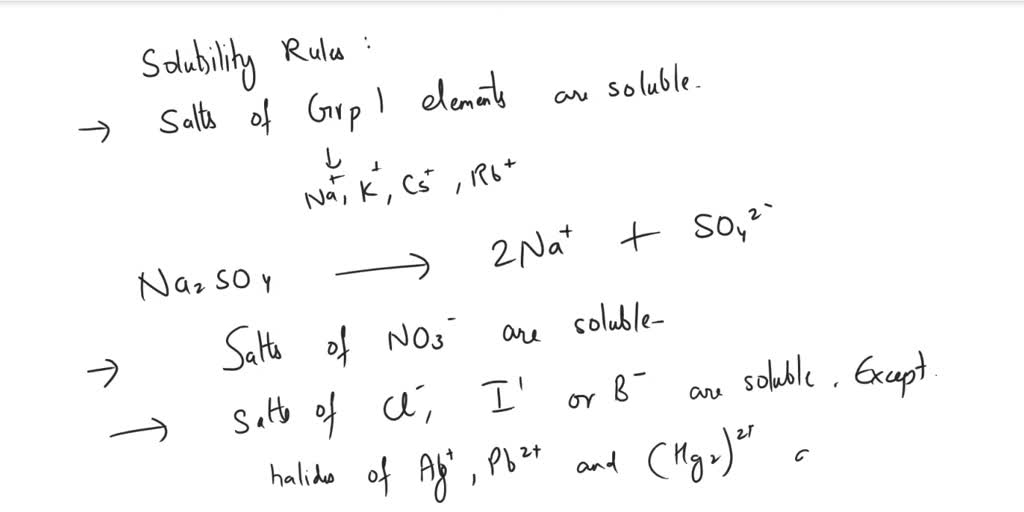 Solubility Rules :
→ Salts of Grp 1 elements are soluble.
↓
Na⁺, K⁺, Cs⁺, Rb⁺
Na₂SO₄ ⟶ 2Na⁺ + SO₄²⁻
→ Salts of NO₃⁻ are soluble-
→ Salts of Cl⁻, I⁻ or B⁻ are soluble. Except.
halides of Ag⁺, Pb²⁺ and (Hg₂)²⁺ a